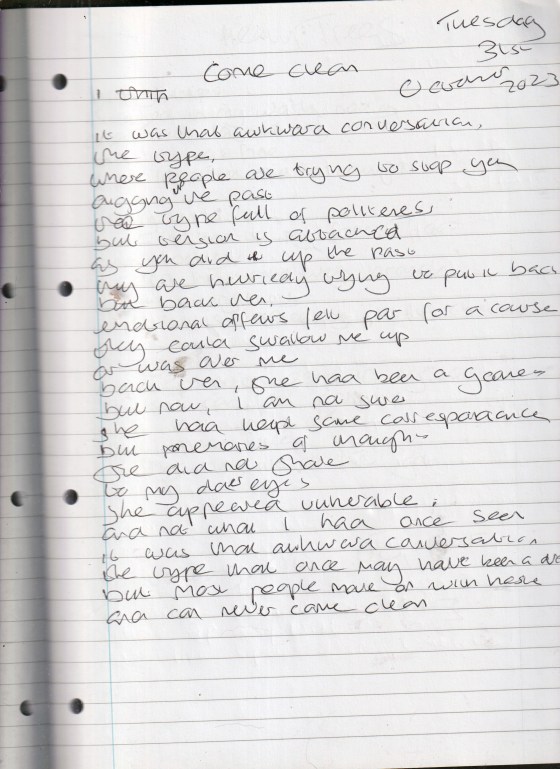 Tuesday
31st
Come clean
October 2023
it was that awkward conversation,
the type,
where people are trying to stop you
digging up the past
type full of politeness
but tension is attached
as you did up the past
they are hurriedly trying to put it back
but back then,
emotional affairs felt par for a course
they could swallow me up
or was over me
back then, she had been a
but now, I am not sure
she had kept some correspondence
but memories of thought
she did not share
to my eyes
she appeared vulnerable,
and not what I had once seen
it was that awkward conversation
the type that once may have been a
but most people move on with haste
and can never come clean